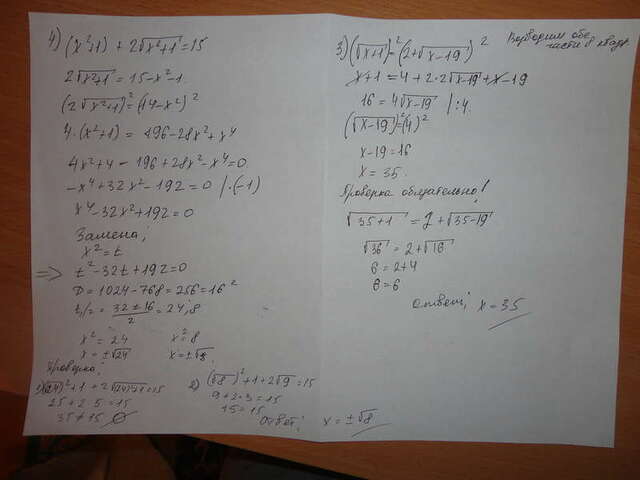 4) (x²+1) + 2√x²+1 = 15
2√x²+1 = 15-x²-1
(2√x²+1)² = (14-x²)²
4·(x²+1) = 196-28x²+x⁴
4x²+4-196+28x²-x⁴=0
-x⁴+32x²-192=0 /·(-1)
x⁴-32x²+192=0
Замена:
x²=t
⇒ t²-32t+192=0
D=1024-768=256=16²
t₁/₂=(32±16)/2=24;8
x²=24 x²=8
x=±√24 x=±√8
Проверка:
1) (√24)²+1+2√(24)+1=15
25+2·5=15
35≠15 ∅
2) (√8)²+1+2√9=15
9+2·3=15
15=15
Ответ: x=±√8
3) (√x+1)²=(2+√x-19)²
Возводим обе части в квадр.
x+1=4+2·2√x-19+x-19
16=4√x-19 /:4
(√x-19)²=(4)²
x-19=16
x=35.
Проверка обязательно!
√35+1=2+√35-19
√36=2+√16
6=2+4
6=6
Ответ: x=35